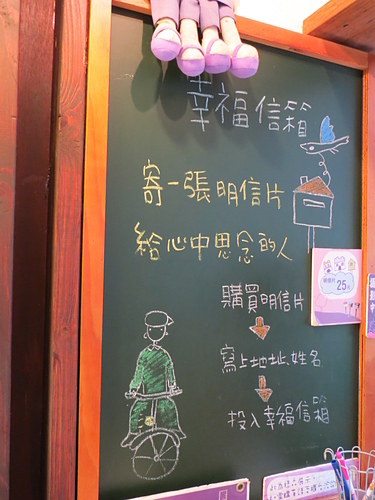 幸福信箱
寄一張明信片
給心中思念的人
25元
購買明信片
寫上地址、姓名
投入幸福信箱